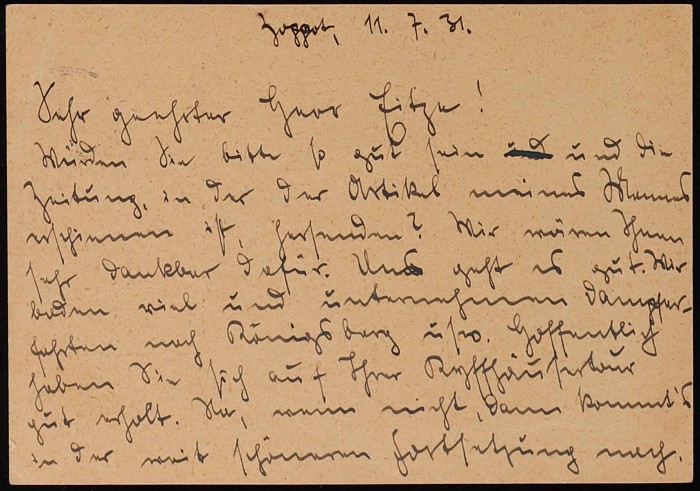 Zoppot, 11. 7. 31.
Sehr geehrter Herr Fitze!
Würden Sie bitte so gut sein und die
Zeitung, in der der Artikel meines Mannes
erschienen ist, hersenden? Wir wären Ihnen
sehr dankbar dafür. Uns geht es gut. Wir
baden viel und unternehmen Dampfer-
fahrten nach Königsberg usw. Hoffentlich
haben Sie sich auf Ihrer Kyffhäusertour
gut erholt. Na, wenn nicht, dann kommt's
in der weit schöneren Fortsetzung nach.